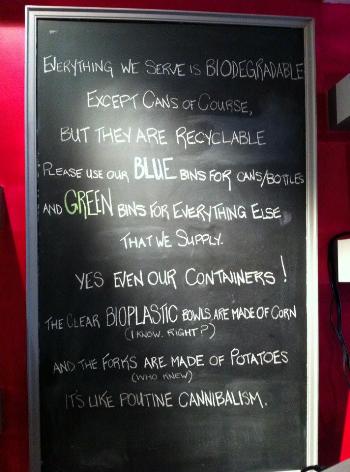 EVERYTHING WE SERVE IS BIODEGRADABLE
EXCEPT CANS OF COURSE,
BUT THEY ARE RECYCLABLE
PLEASE USE OUR BLUE BINS FOR CANS/BOTTLES
AND GREEN BINS FOR EVERYTHING ELSE
THAT WE SUPPLY.
YES EVEN OUR CONTAINERS!
THE CLEAR BIOPLASTIC BOWLS ARE MADE OF CORN
(I KNOW. RIGHT?)
AND THE FORKS ARE MADE OF POTATOES
(WHO KNEW)
ITS LIKE POUTINE CANNIBALISM.